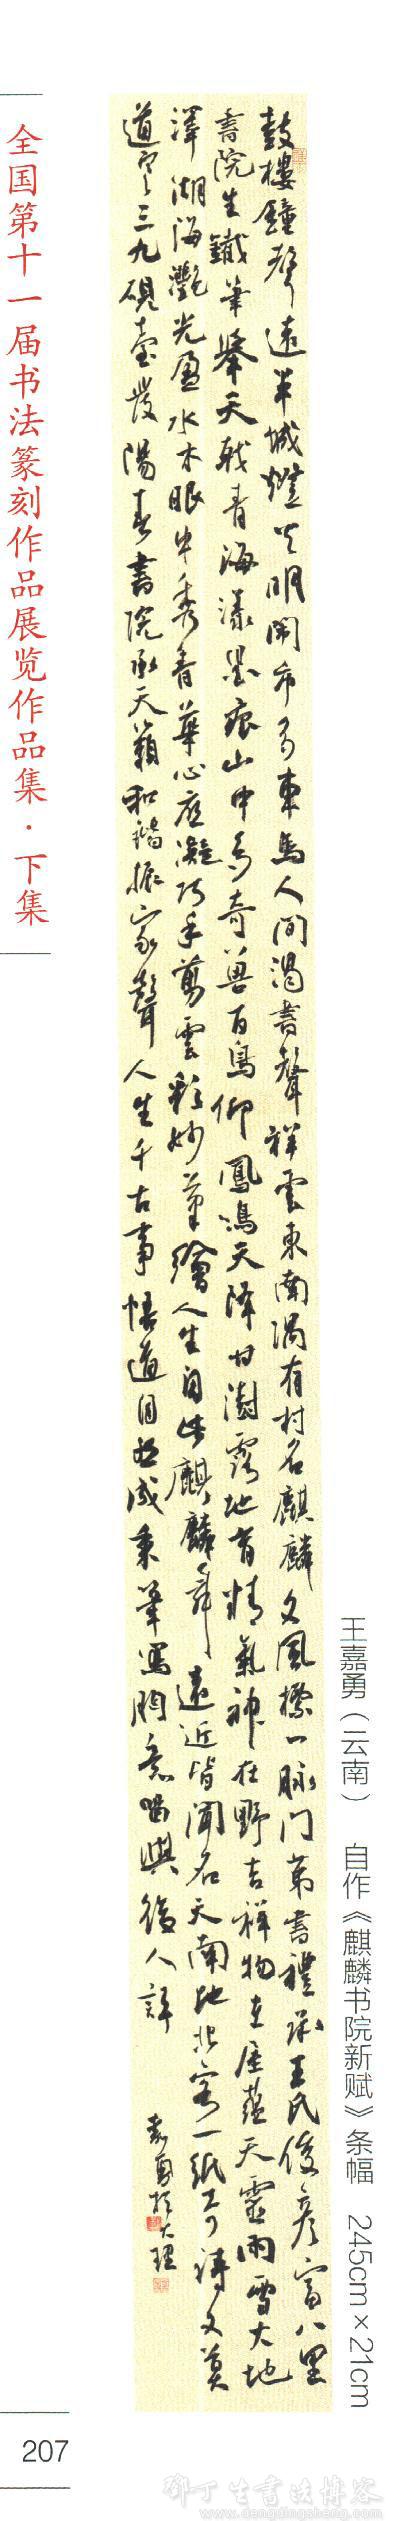 全国第十一届书法篆刻作品展览作品集·下集
鼓樓鐘聲遠半城燈火明鬧市多車馬人間渴書聲祥雲東南隅有村名麒麟文風標一脉门第書禮承王氏俊彦富八里
書院生鐵筆舉天戟青海漾墨痕山中多奇兽百鳥仰鳳鴻天降甘澍露地育精氣神在野吉祥物在屋蕴天靈雨雪大地
澤湖海灧光盈水木眼中秀青華心底凝巧手剪雲彩妙筆繪人生自此麒麟舞遠近皆聞名天南地北客一纸工诗文莫
道三九硯臺發陽春書院承天籟和諧振家聲人生千古事悟道自然成秉筆寫胸意留與後人評
嘉勇於大理
王嘉勇（云南） 自作《麒麟书院新赋》条幅 245cm×21cm
207
邓丁生书法博客
www.dengdingsheng.com